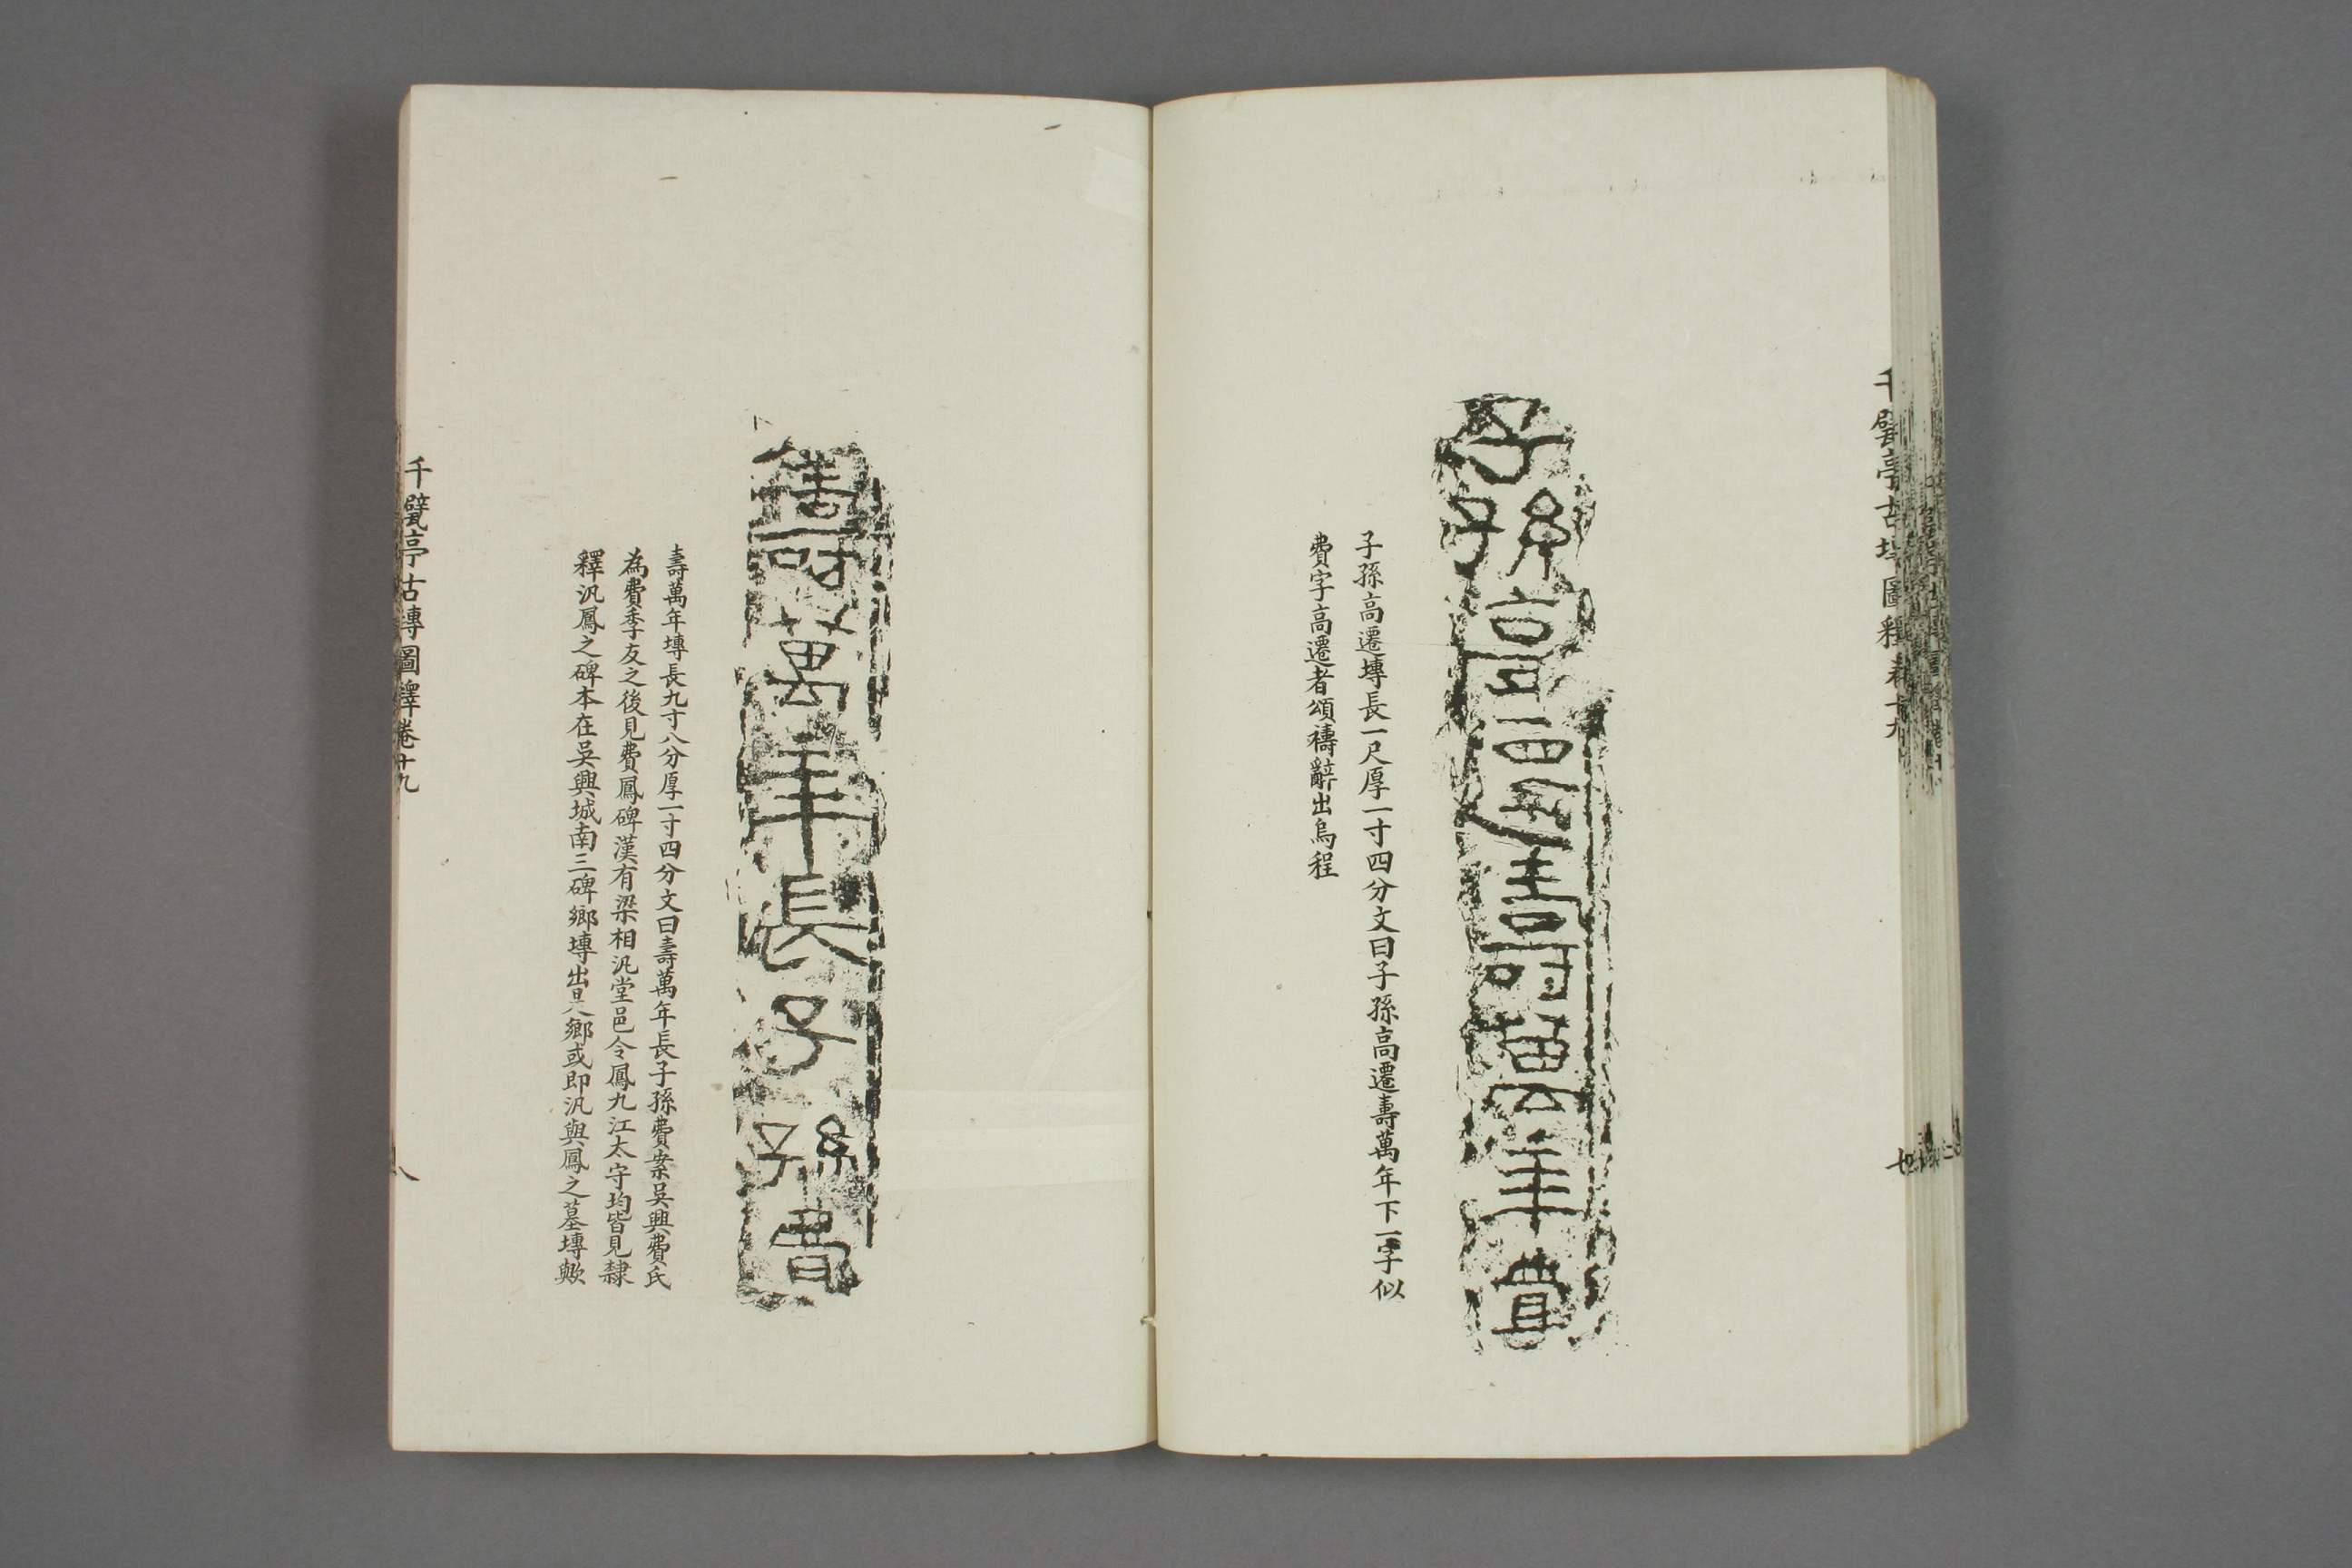 千甓亭古塼圖釋卷十九
子孫高遷壽萬年費
子孫高遷塼長一尺厚一寸四分文曰子孫高遷壽萬年下一字似
費字高遷者頌禱辭出烏程
壽萬年長子孫費
壽萬年塼長九寸八分厚一寸四分文曰壽萬年長子孫費案吳興費氏
為費季友之後見費鳳碑漢有梁相汎堂邑令鳳九江太守均皆見隸
釋汎鳳之碑本在吳興城南三碑鄉塼出是鄉或即汎與鳳之墓塼歟
千甓亭古塼圖釋卷十九
八